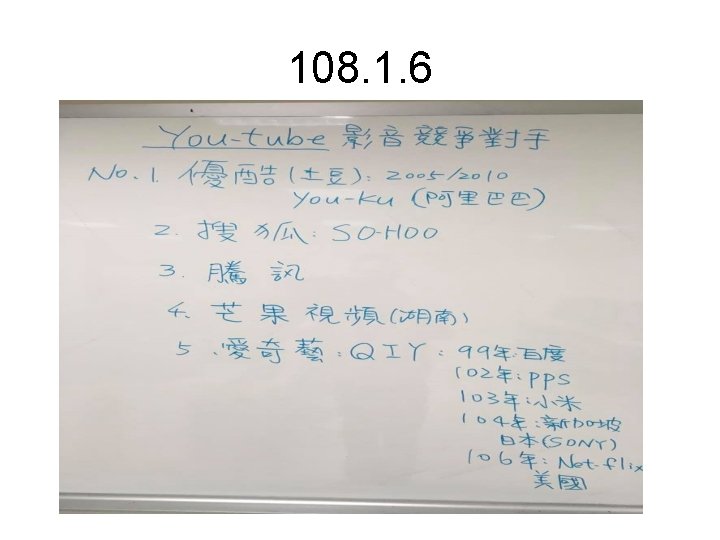 108. 1. 6
You-tube 影音競爭對手
No. 1. 優酷(土豆): 2005/2010
You-Ku (阿里巴巴)
2. 搜狐: SO-HOO
3. 騰訊
4. 芒果視頻(湖南)
5. 愛奇藝: QIY: 99年:百度
102年: PPS
103年:小米
104年:新加坡
日本(SONY)
106年: Net-flix
美國